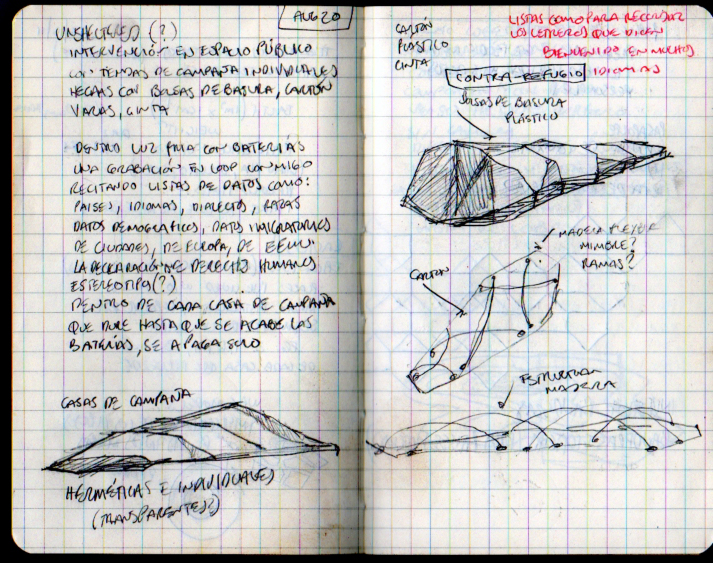 AUG 20
UNSHELTERED (?)
INTERVENCIÓN EN ESPACIO PÚBLICO
CON TIENDAS DE CAMPAÑA INDIVIDUALES
HECHAS CON BOLSAS DE BASURA, CARTÓN
VARAS, CINTA
DENTRO LUZ FRIA CON BATERÍAS
UNA GRABACIÓN EN LOOP CONMIGO
RECITANDO LISTAS DE DATOS COMO:
PAISES, IDIOMAS, DIALECTOS, RAZAS
DATOS DEMOGRAFICOS, DATOS INMIGRATORIOS
DE CIUDADES, DE EUROPA, DE EEUU
LA DECLARACIÓN DE DERECHOS HUMANOS
ESTEREOTIPOS (?)
DENTRO DE CADA CASA DE CAMPAÑA
QUE DURE HASTA QUE SE ACABE LAS
BATERÍAS, SE APAGA SOLO
CASAS DE CAMPAÑA
HERMÉTICAS E INDIVIDUALES
(TRANSPARENTES?)
CARTÓN
PLÁSTICO
CINTA
LISTAS COMO PARA RECORDAR
LOS LETREROS QUE DICEN
BIENVENIDO EN MUCHOS
IDIOMAS
CONTRA-REFUGIO
BOLSAS DE BASURA
PLÁSTICO
MADERA FLEXIBLE
MIMBRE?
RAMAS?
CARTON
ESTRUCTURA
MADERA